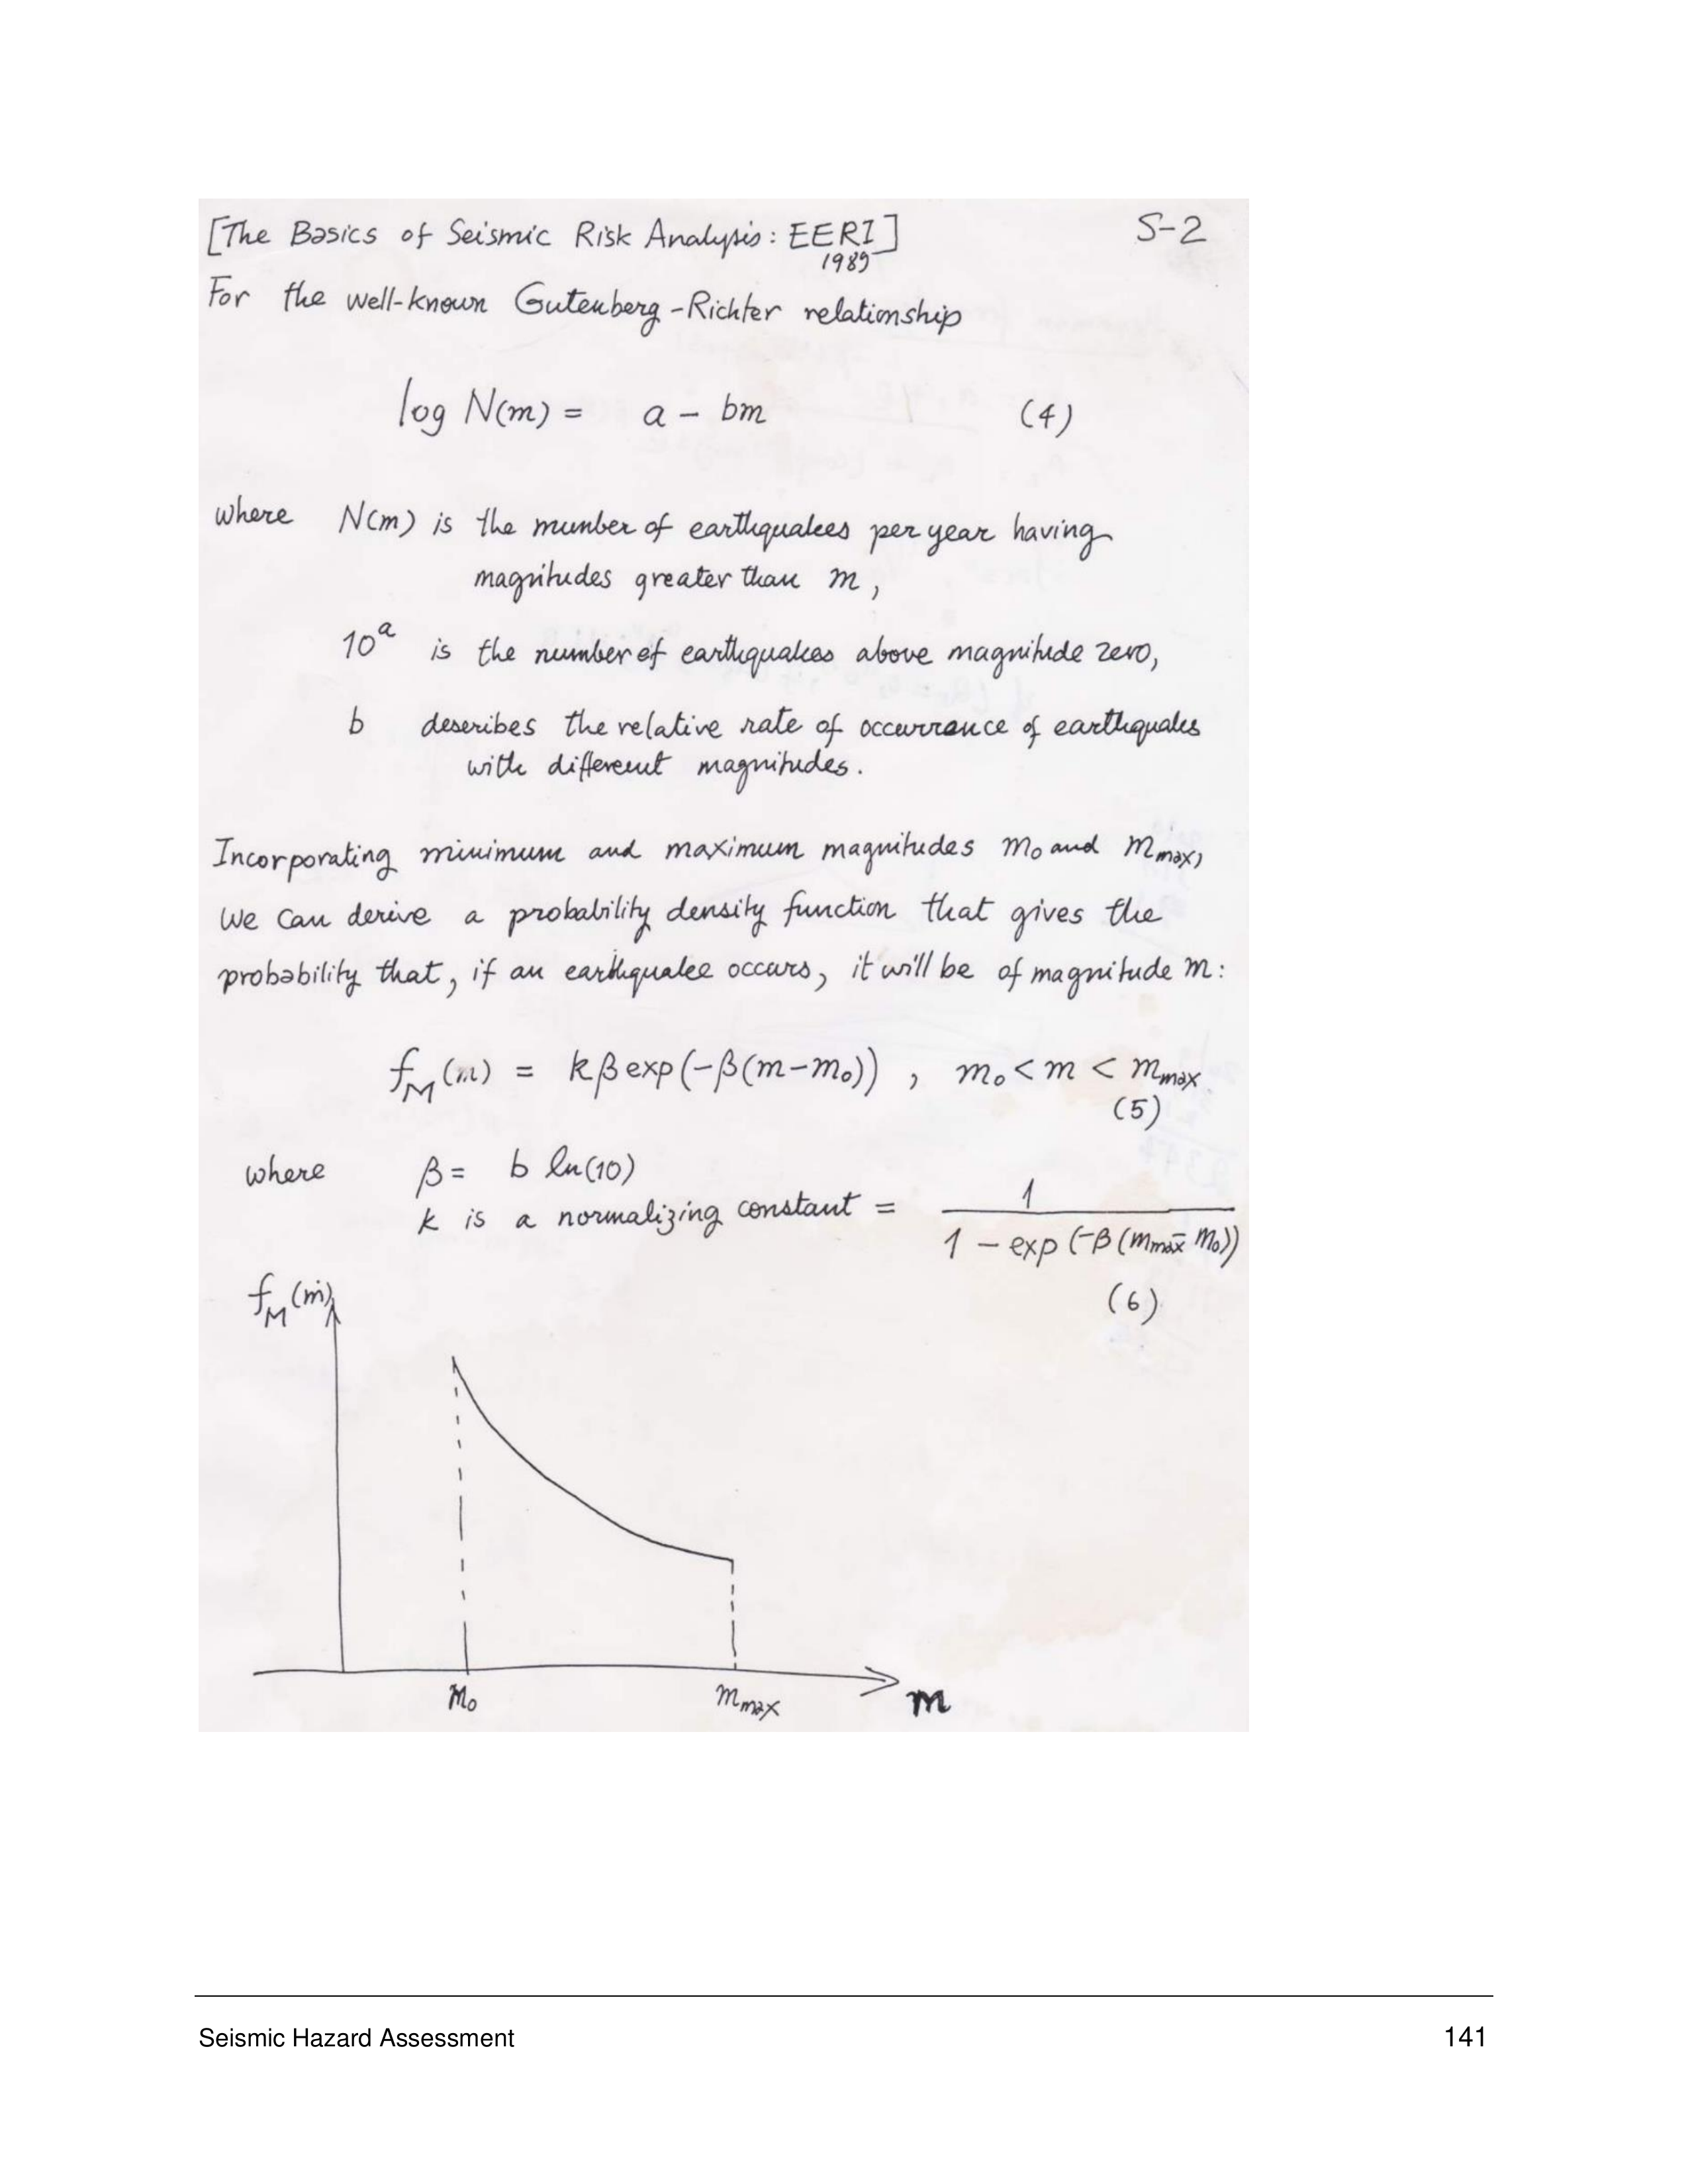 [The Basics of Seismic Risk Analysis: EERI] S-2
1989
For the well-known Gutenberg-Richter relationship
log N(m) = a - bm (4)
where N(m) is the number of earthquakes per year having
magnitudes greater than m,
10^a is the number of earthquakes above magnitude zero,
b describes the relative rate of occurrence of earthquakes
with different magnitudes.
Incorporating minimum and maximum magnitudes m₀ and m_max,
we can derive a probability density function that gives the
probability that, if an earthquake occurs, it will be of magnitude m:
f_M(m) = kβ exp(-β(m-m₀)) , m₀ < m < m_max
(5)
where β = b ln(10)
k is a normalizing constant = 1 / (1 - exp(-β(m_max - m₀)))
f_M(m) (6)
m₀ m_max m
Seismic Hazard Assessment 141